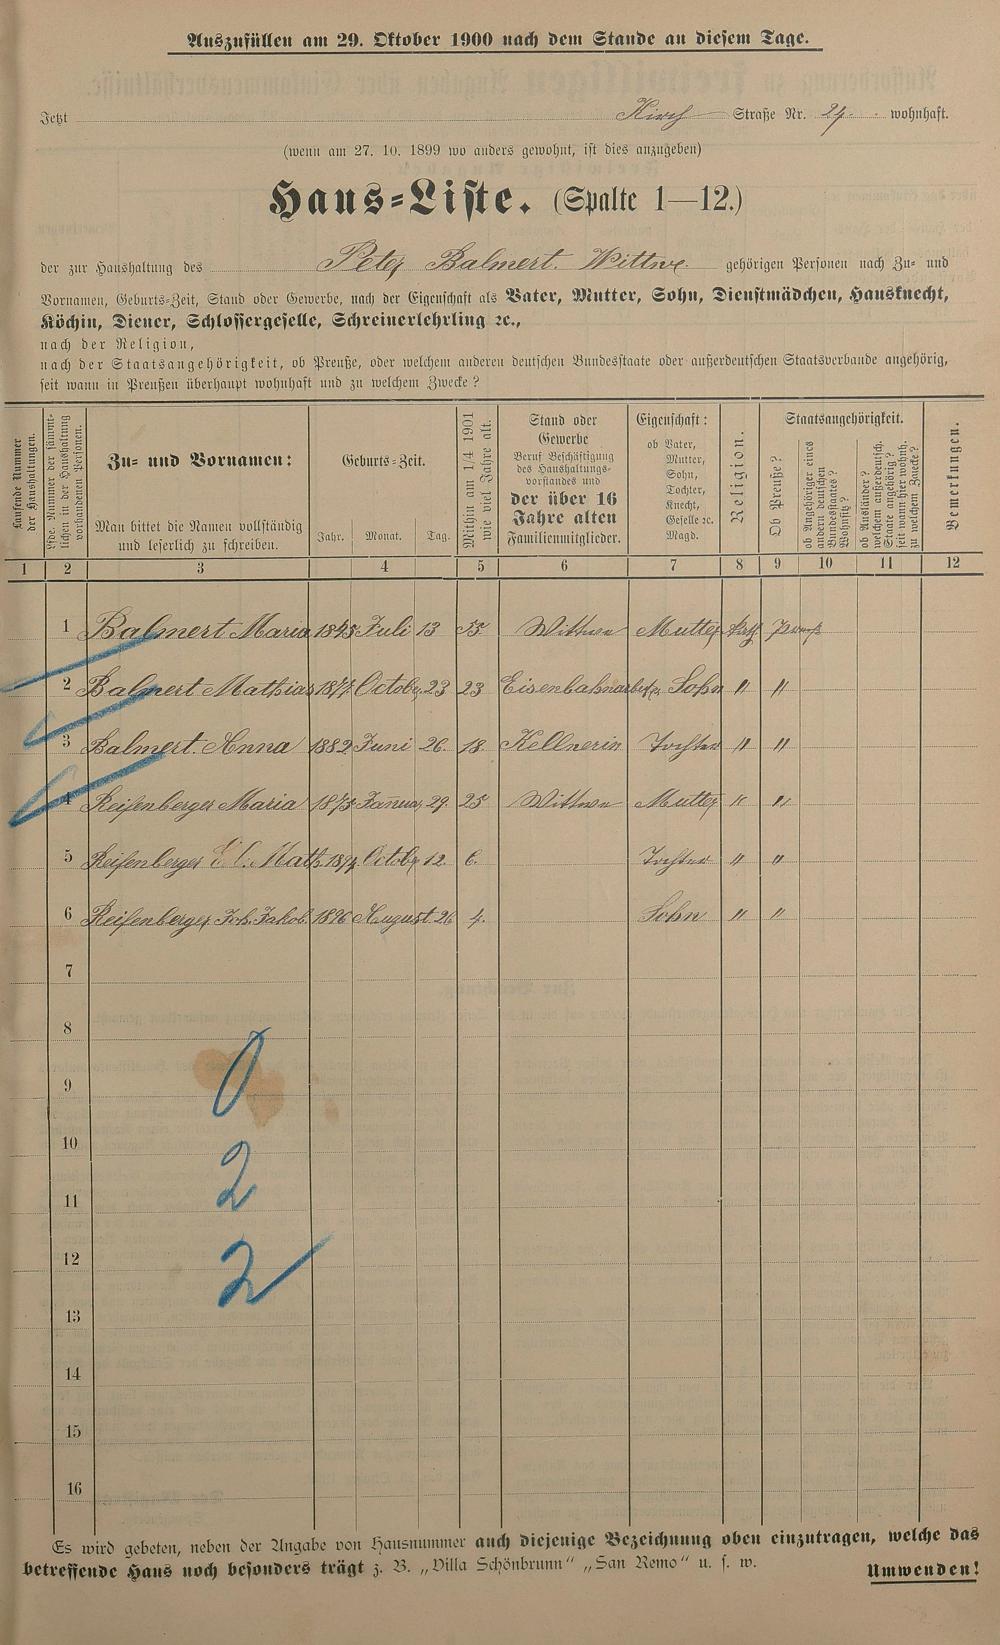 Auszufüllen am 29. Oktober 1900 nach dem Stande an diesem Tage.
Jetzt Kirch Straße Nr. 24. wohnhaft.
(wenn am 27. 10. 1899 wo anders gewohnt, ist dies anzugeben)
Haus-Liste. (Spalte 1—12.)
der zur Haushaltung des Peter Balmert. Wittwe. gehörigen Personen nach Zu- und
Vornamen, Geburts-Zeit, Stand oder Gewerbe, nach der Eigenschaft als Vater, Mutter, Sohn, Dienstmädchen, Hausknecht,
Köchin, Diener, Schlossergeselle, Schreinerlehrling ꝛc.,
nach der Religion,
nach der Staatsangehörigkeit, ob Preuße, oder welchem anderen deutschen Bundesstaate oder außerdeutschen Staatsverbande angehörig,
seit wann in Preußen überhaupt wohnhaft und zu welchem Zwecke?
Laufende Nummer
der Haushaltungen.
Lfde. Nummer der sämmt-
lichen in der Haushaltung
vorhandenen Personen.
Zu- und Vornamen:
Man bittet die Namen vollständig
und leserlich zu schreiben.
Geburts-Zeit.
Jahr. Monat. Tag.
Mithin am 1/4 1901
wie viel Jahre alt.
Stand oder
Gewerbe
Beruf Beschäftigung
des Haushaltungs-
vorstandes und
der über 16
Jahre alten
Familienmitglieder.
Eigenschaft:
ob Vater,
Mutter,
Sohn,
Tochter,
Knecht,
Geselle ꝛc.
Magd.
Religion.
Staatsangehörigkeit.
Ob Preuße?
ob Angehöriger eines
andern deutschen
Bundesstaates?
Wohnsitz?
ob Ausländer?
welchem außerdeutsch.
Staate angehörig?
seit wann hier wohnh.
zu welchem Zwecke?
Bemerkungen.
1 2 3 4 5 6 7 8 9 10 11 12
1 Balmert Maria 1845 Juli 13 55 Wittwe Mutter kath Preuß
2 Balmert Mathias 1877 Octob. 23 23 Eisenbahnarbeiter Sohn " "
3 Balmert. Anna 1882 Juni 26. 18. Kellnerin Tochter " "
4 Reifenberger Maria 1875 Januar 29. 25 Wittwe Mutter " "
5 Reifenberger Math. 1894 Octob. 12. 6. Tochter " "
6 Reifenberger Joh. Jakob. 1896 August. 26 4. Sohn " "
7
8
0
9
10
2
11
12
2
13
14
15
16
Es wird gebeten, neben der Angabe von Hausnummer auch diejenige Bezeichnung oben einzutragen, welche das
betreffende Haus noch besonders trägt z. B. „Villa Schönbrunn“ „San Remo“ u. s. w.
Umwenden!